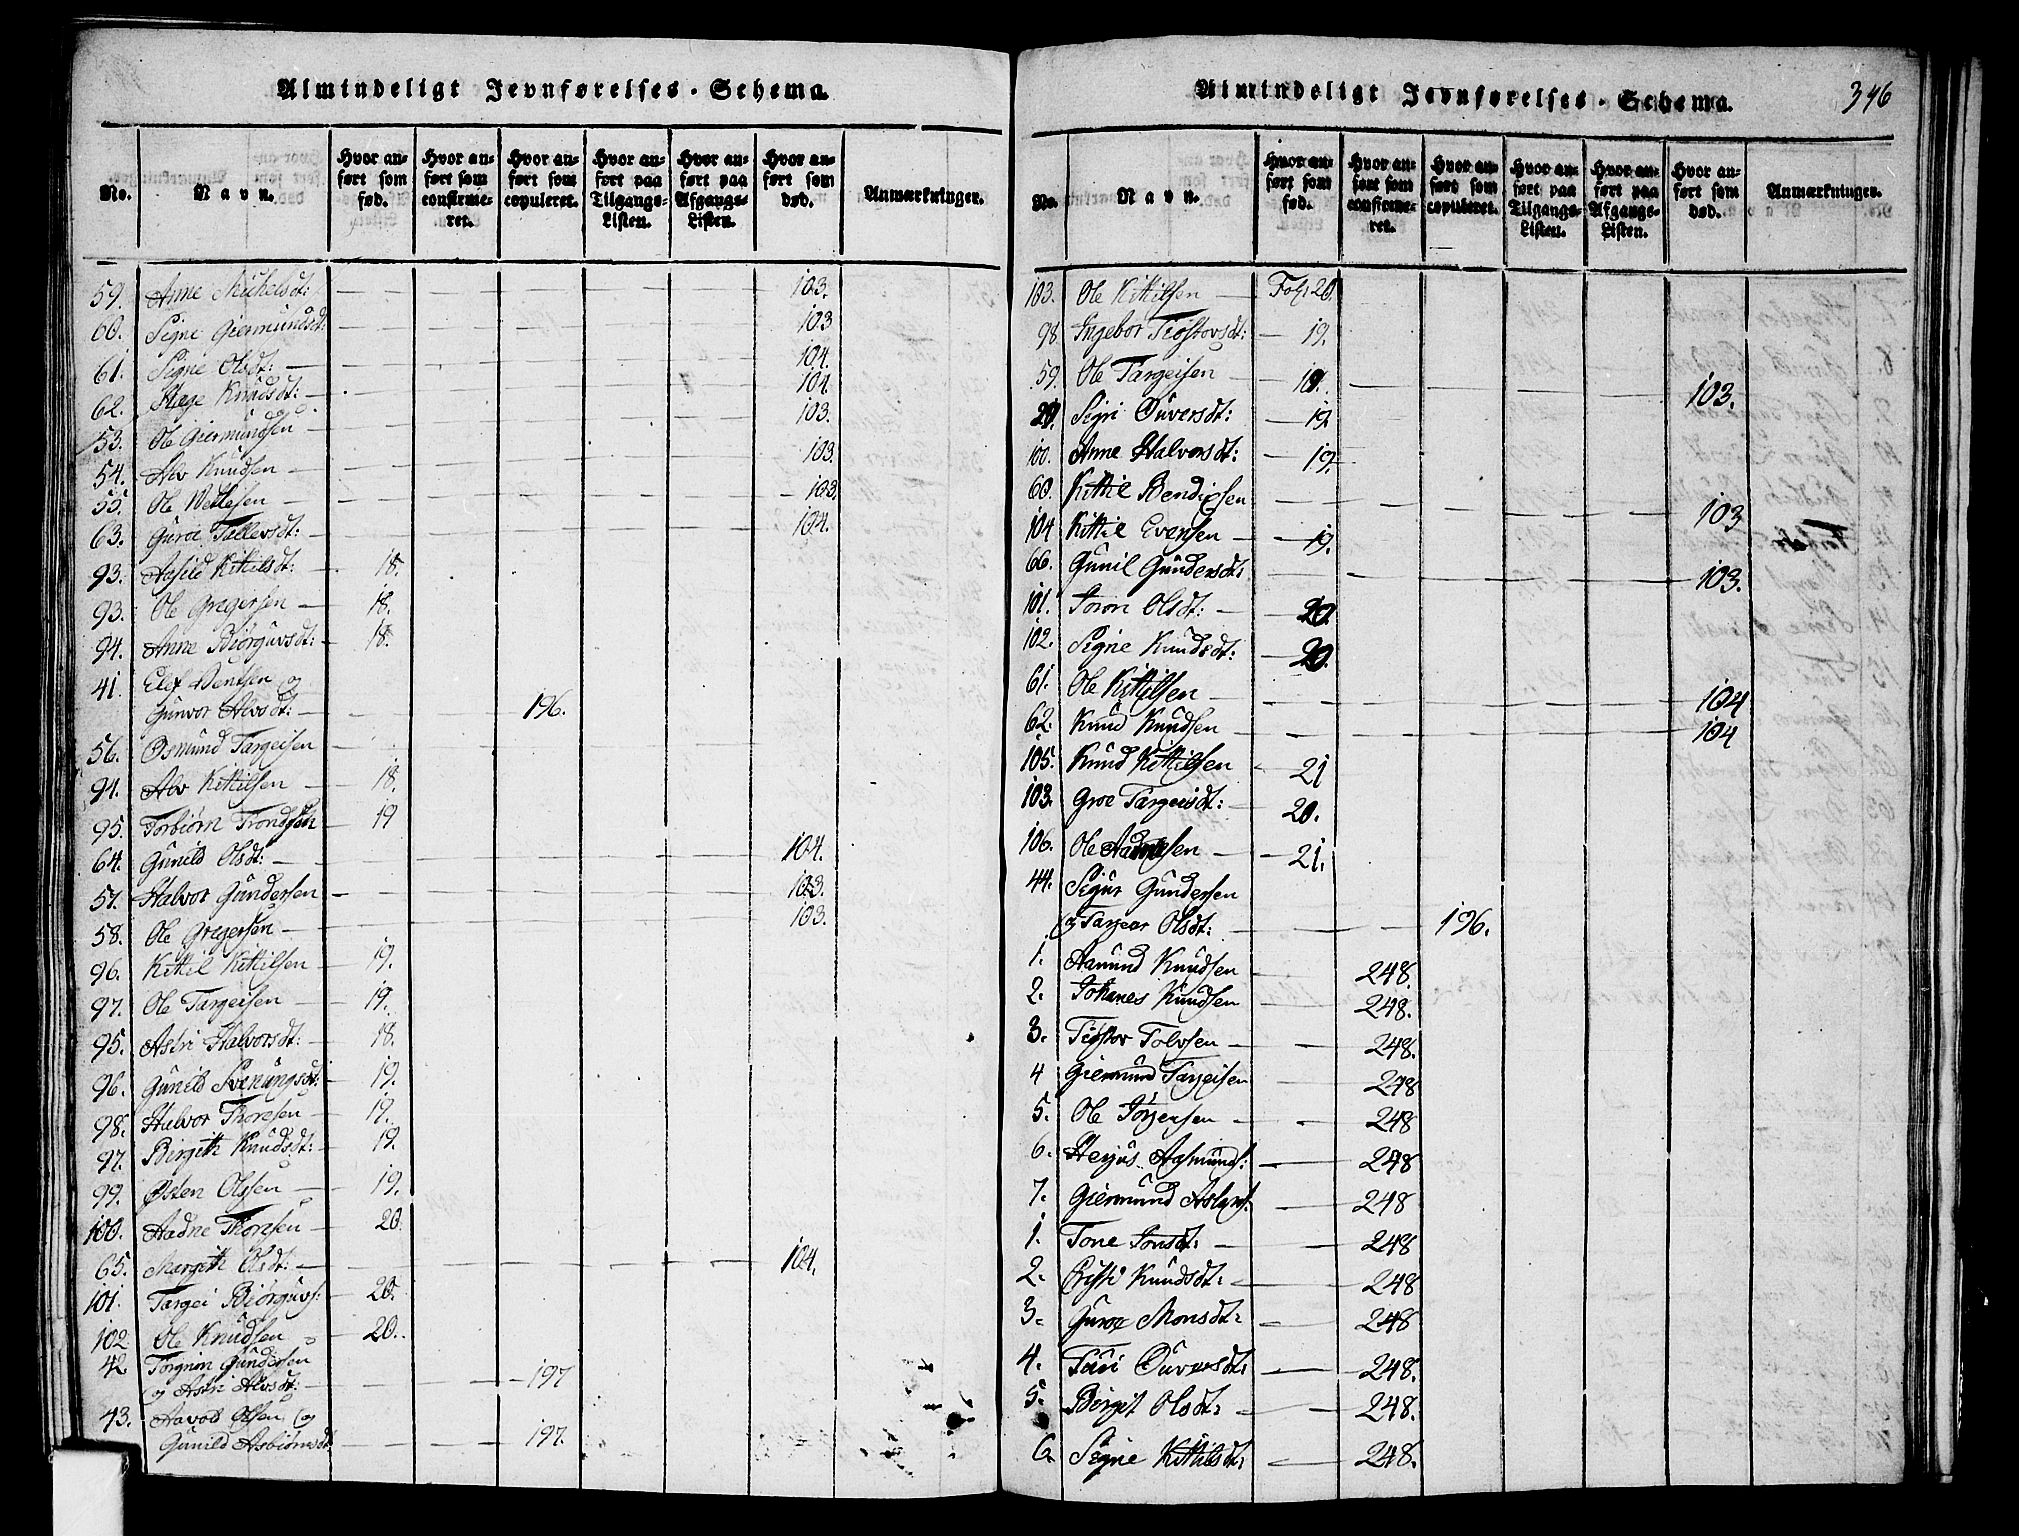 Almindeligt Jevnførelses-Schema.
No. Navn. Hvor anført som fød. Hvor anført som confirmeret. Hvor anført som copuleret. Hvor anført paa Tilgangs-Listen. Hvor anført paa Afgangs-Listen. Hvor anført som død. Anmærkninger.
59. Anne Michelsdt: 103.
60. Signe Giermundsdt: 103
61. Signe Olsdt: 104.
62. Hæge Knudsdt: 104.
53. Ole Giermundsen 103.
54. Alv Knudsen 103.
55. Ole Wetlesen 103.
63. Guroe Tallevsdt: 104.
93. Aasild Kittilsdt: 18.
93. Ole Gregersen 18.
94. Anne Biørguvsdt: 18.
41. Elef Bentsen og
Gunvor Alvsdt: 196.
56. Osmund Targeisen
94. Alv Kittilsen 18.
95. Torbiørn Trondsen 19
64. Gunild Olsdt: 104.
57. Halvor Gundersen 103.
58. Ole Gregersen 103.
96. Kittil Kittilsen 19.
97. Ole Targeisen 19.
95. Astri Halvorsdt: 18.
96. Gunild Svenungsdt: 19.
98. Halvor Thoresen 19.
97. Birgith Knudsdt: 19.
99. Østen Olsen 19.
100. Aadne Thoresen 20.
65. Margith Olsdt: 104.
101. Targei Biørguvs: 20.
102 Ole Knudsen 20.
42. Torgrim Gundersen
og Astri Alvsdt: 197
43. Aavod Olsen og
Gunild Asbiørnsdt 197.
Almindeligt Jevnførelses-Schema. 346
No. Navn. Hvor anført som fød. Hvor anført som confirmeret. Hvor anført som copuleret. Hvor anført paa Tilgangs-Listen. Hvor anført paa Afgangs-Listen. Hvor anført som død. Anmærkninger.
103. Ole Kittilsen Fol: 20.
98 Ingebor Tiøstovsdt: 19.
59. Ole Targeisen 103.
Sigri Ouversdt: 19
100. Anne Halvorsdt: 19.
60. Kittil Bendixsen 103
104 Kittil Evensen 19.
66. Gunil Gundersdt: 103.
101. Joron Olsdt: 20
102. Signe Knudsdt: 20.
61. Ole Kittilsen 104
62. Knud Knudsen 104
105. Knud Kittilsen 21
103. Groe Targeisdt: 20.
106. Ole Aadnesen 21.
44. Sigur Gundersen
og Targeer Olsdt: 196.
1. Aamund Knudsen 248.
2. Johanes Knudsen 248.
3. Tiøstov Tolvsen 248.
4 Giermund Targeisen 248
5. Ole Jørgensen 248
6. Herjus Aasmunds: 248
7. Giermund Aslaks: 248
1. Tone Jonsdt: 248
2. Kisti Knudsdt: 248
3. Guroe Monsdt: 248
4. Turi Ouversdt: 248.
5. Birgit Olsdt: 248.
6. Signe Kittilsdt: 248.